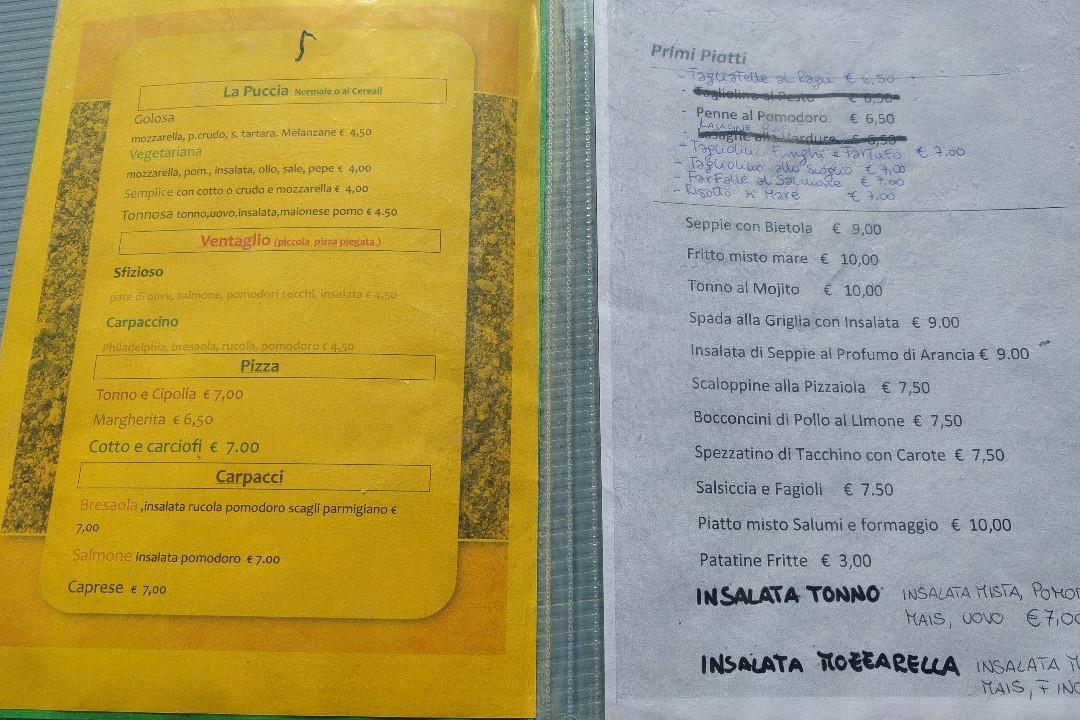 La Puccia Normale o ai Cereali
Golosa
mozzarella, p.crudo, s. tartara. Melanzane € 4,50
Vegetariana
mozzarella, pom., insalata, olio, sale, pepe € 4,00
Semplice con cotto o crudo e mozzarella € 4,00
Tonnosa tonno,uovo,insalata,maionese pomo € 4.50
Ventaglio (piccola pizza piegata )
Sfizioso
pate di olive, salmone, pomodori secchi, insalata € 4,50
Carpaccino
Philadelphia, bresaola, rucola, pomodoro € 4,50
Pizza
Tonno e Cipolla € 7,00
Margherita € 6,50
Cotto e carciofi € 7.00
Carpacci
Bresaola ,insalata rucola pomodoro scagli parmigiano €
7,00
Salmone insalata pomodoro € 7.00
Caprese € 7,00
Primi Piatti
- Tagliatelle al Ragù € 6,50
- Tagliolino al Pesto € 6,50
- Penne al Pomodoro € 6,50
LASAGNE
- Lasagne alla Verdure € 6,50
- Tagliolini Funghi e Tartufo € 7.00
- Tagliolino allo Scoglio € 7,00
- Farfalle al Salmone € 7,00
- Risotto Mare € 7.00
Seppie con Bietola € 9,00
Fritto misto mare € 10,00
Tonno al Mojito € 10,00
Spada alla Griglia con Insalata € 9.00
Insalata di Seppie al Profumo di Arancia € 9.00
Scaloppine alla Pizzaiola € 7,50
Bocconcini di Pollo al LImone € 7,50
Spezzatino di Tacchino con Carote € 7,50
Salsiccia e Fagioli € 7.50
Piatto misto Salumi e formaggio € 10,00
Patatine Fritte € 3,00
INSALATA TONNO INSALATA MISTA, POMO
MAIS, UOVO € 7,00
INSALATA MOZZARELLA INSALATA M
MAIS, FINO